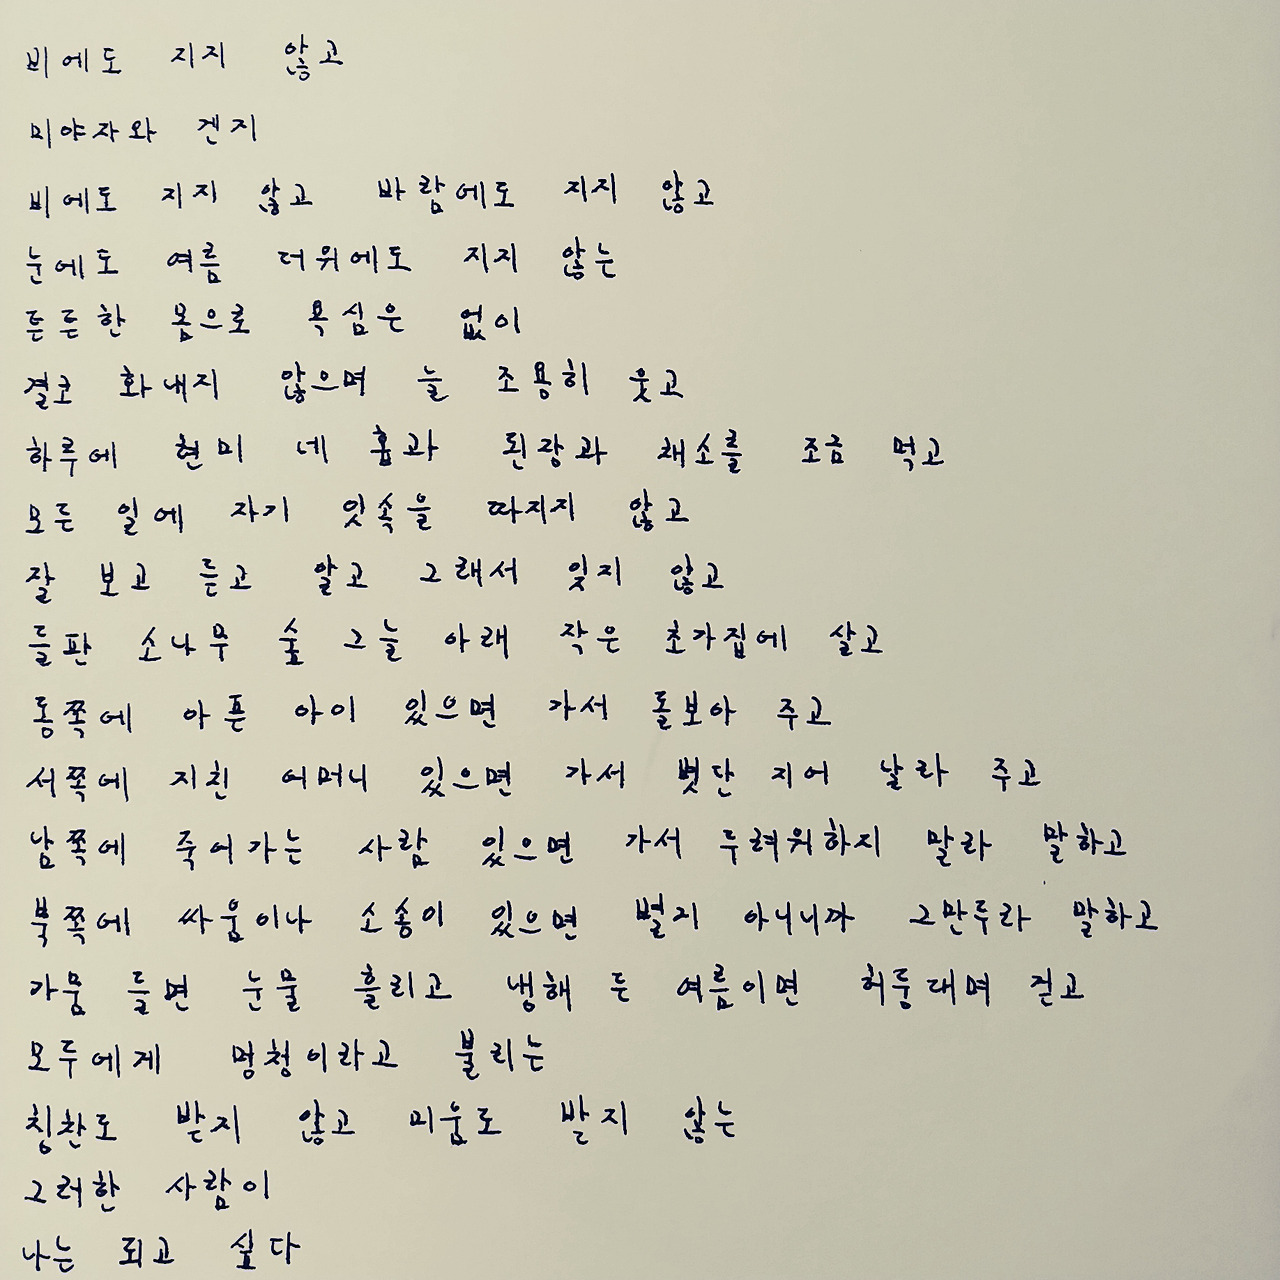 비에도 지지 않고
미야자와 겐지
비에도 지지 않고 바람에도 지지 않고
눈에도 여름 더위에도 지지 않는
튼튼한 몸으로 욕심은 없이
결코 화내지 않으며 늘 조용히 웃고
하루에 현미 네 홉과 된장과 채소를 조금 먹고
모든 일에 자기 잇속을 따지지 않고
잘 보고 듣고 알고 그래서 잊지 않고
들판 소나무 숲 그늘 아래 작은 초가집에 살고
동쪽에 아픈 아이 있으면 가서 돌보아 주고
서쪽에 지친 어머니 있으면 가서 볏단 지어 날라 주고
남쪽에 죽어가는 사람 있으면 가서 두려워하지 말라 말하고
북쪽에 싸움이나 소송이 있으면 별거 아니니까 그만두라 말하고
가뭄 들면 눈물 흘리고 냉해 든 여름이면 허둥대며 걷고
모두에게 멍청이라고 불리는
칭찬도 받지 않고 미움도 받지 않는
그러한 사람이
나는 되고 싶다